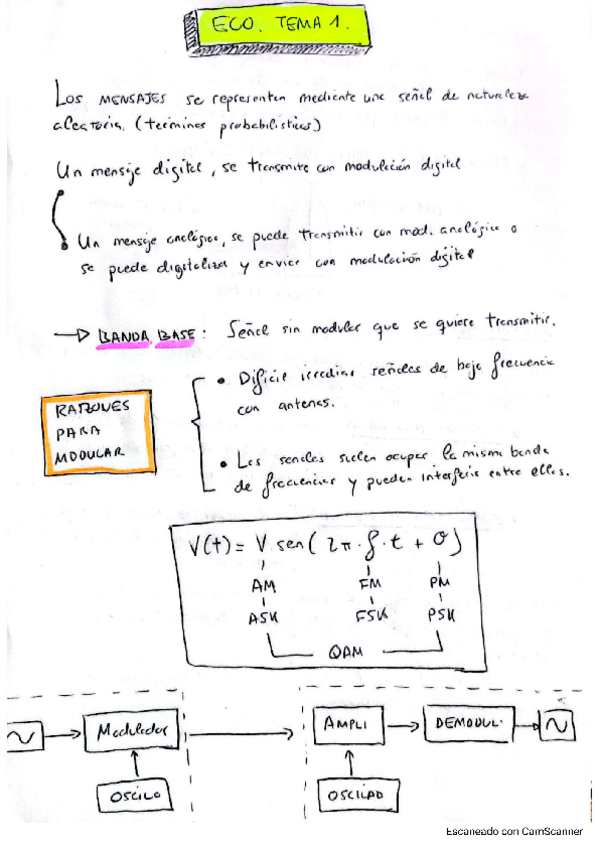 ECO. TEMA 1.
LOS MENSAJES se representan mediante una señal de naturaleza
aleatoria. (terminos probabilísticos)
Un mensaje digital, se transmite con modulación digital
Un mensaje analógico, se puede transmitir con mod. analógica o
se puede digitaliza y enviar con modulación digital
BANDA BASE: Señal sin modular que se quiere transmitir.
RAZONES
PARA
MODULAR
• Dificil irradiar señales de baja frecuencia
con antenas.
• Las senales suelen ocupar la misma banda
de frecuencias y pueden interferir entre ellas.
V(t) = V sen(2π·f·t + θ)
AM FM PM
ASK FSK PSK
QAM
Modulador
OSCILO
AMPLI
DEMODUL.
OSCILAD
Escaneado con CamScanner